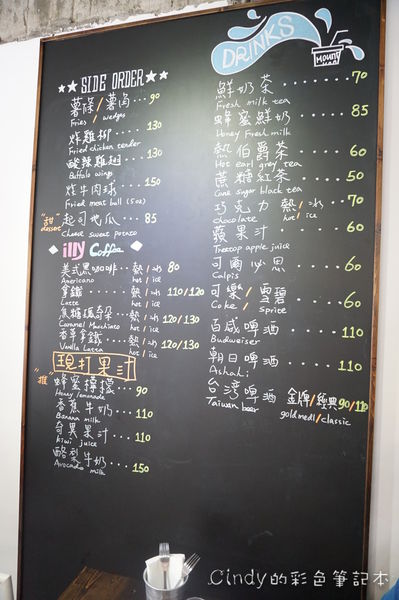 ★★SIDE ORDER★★
薯條/薯角...90
Fries / wedges
炸雞柳....130
Fried chicken tender
酸辣雞翅..130
Buffalo wings
炸牛肉球..150
Fried meat ball (5oz)
"甜" 起司地瓜..85
dessert Cheese sweet potato
illy Coffee
美式黑咖啡.熱/冰 80
Americano hot / ice
拿鐵....熱/冰 110/120
Latte hot / ice
焦糖瑪奇朵.熱/冰 120/130
Caramel Macchiato hot/ice
香草拿鐵..熱/冰 120/130
Vanilla Latte hot/ice
現打果汁
"推" 蜂蜜檸檬...90
Honey lemonade
香蕉牛奶...110
Banana milk
奇異果汁...110
kiwi juice
酪梨牛奶....150
Avocado milk
DRINKS
鮮奶茶.......70
Fresh milk tea
蜂蜜鮮奶......85
Honey Fresh milk
熱伯爵茶......60
Hot earl grey tea
蔗糖紅茶......50
Cane sugar black tea
巧克力 熱/冰..70
chocolate hot / ice
蘋果汁.......60
Treetop apple juice
可爾必思......60
Calpis
可樂/雪碧....60
Coke / sprite
百威啤酒......110
Budweiser
朝日啤酒......110
Ashahi
台灣啤酒 金牌/經典 90/110
Taiwan beer gold medl/classic
Cindy的彩色筆記本